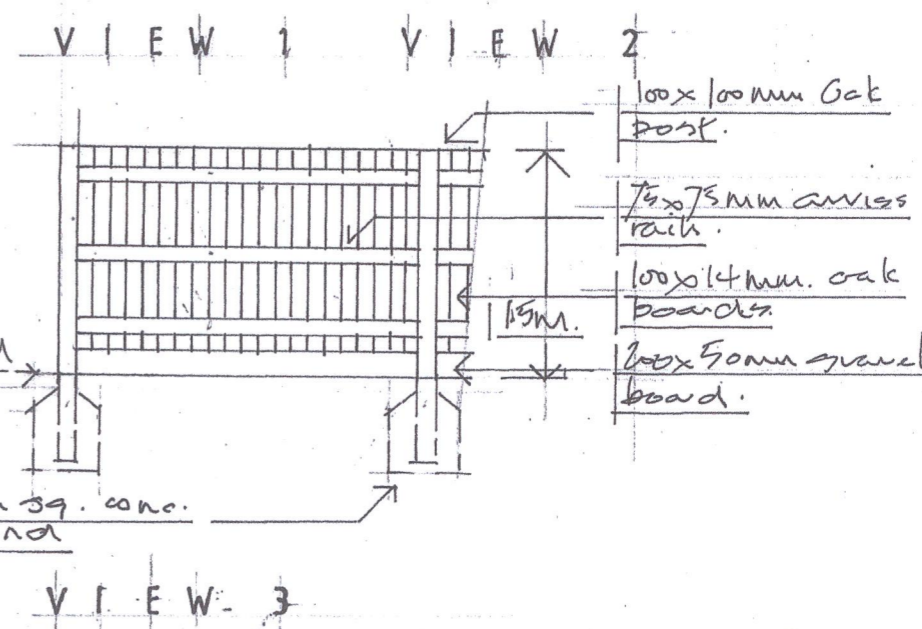 VIEW 1 VIEW 2
100x100mm Oak
post.
75x75mm arriss
rails.
100x14mm. oak
boards.
1.5m.
200x50mm gravel
board.
sq. conc.
VIEW 3